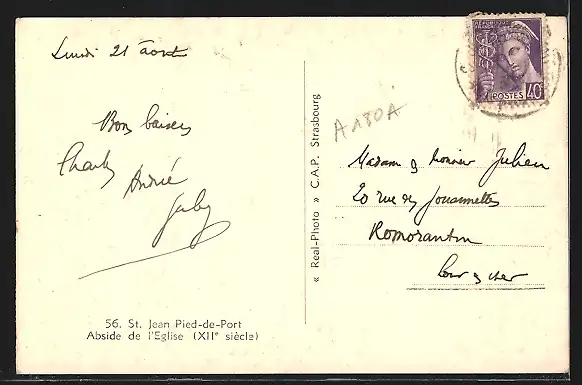 Lundi 21 août
Bons baisers
Charly
André
Gaby
56. St. Jean Pied-de-Port
Abside de l'Eglise (XIIe siècle)
« Real-Photo » C.A.P. Strasbourg
A180A
REPUBLIQUE FRANÇAISE
POSTES 40c
Madame & Monsieur Julien
20 rue des Jouannettes
Romorantin
Loir & Cher